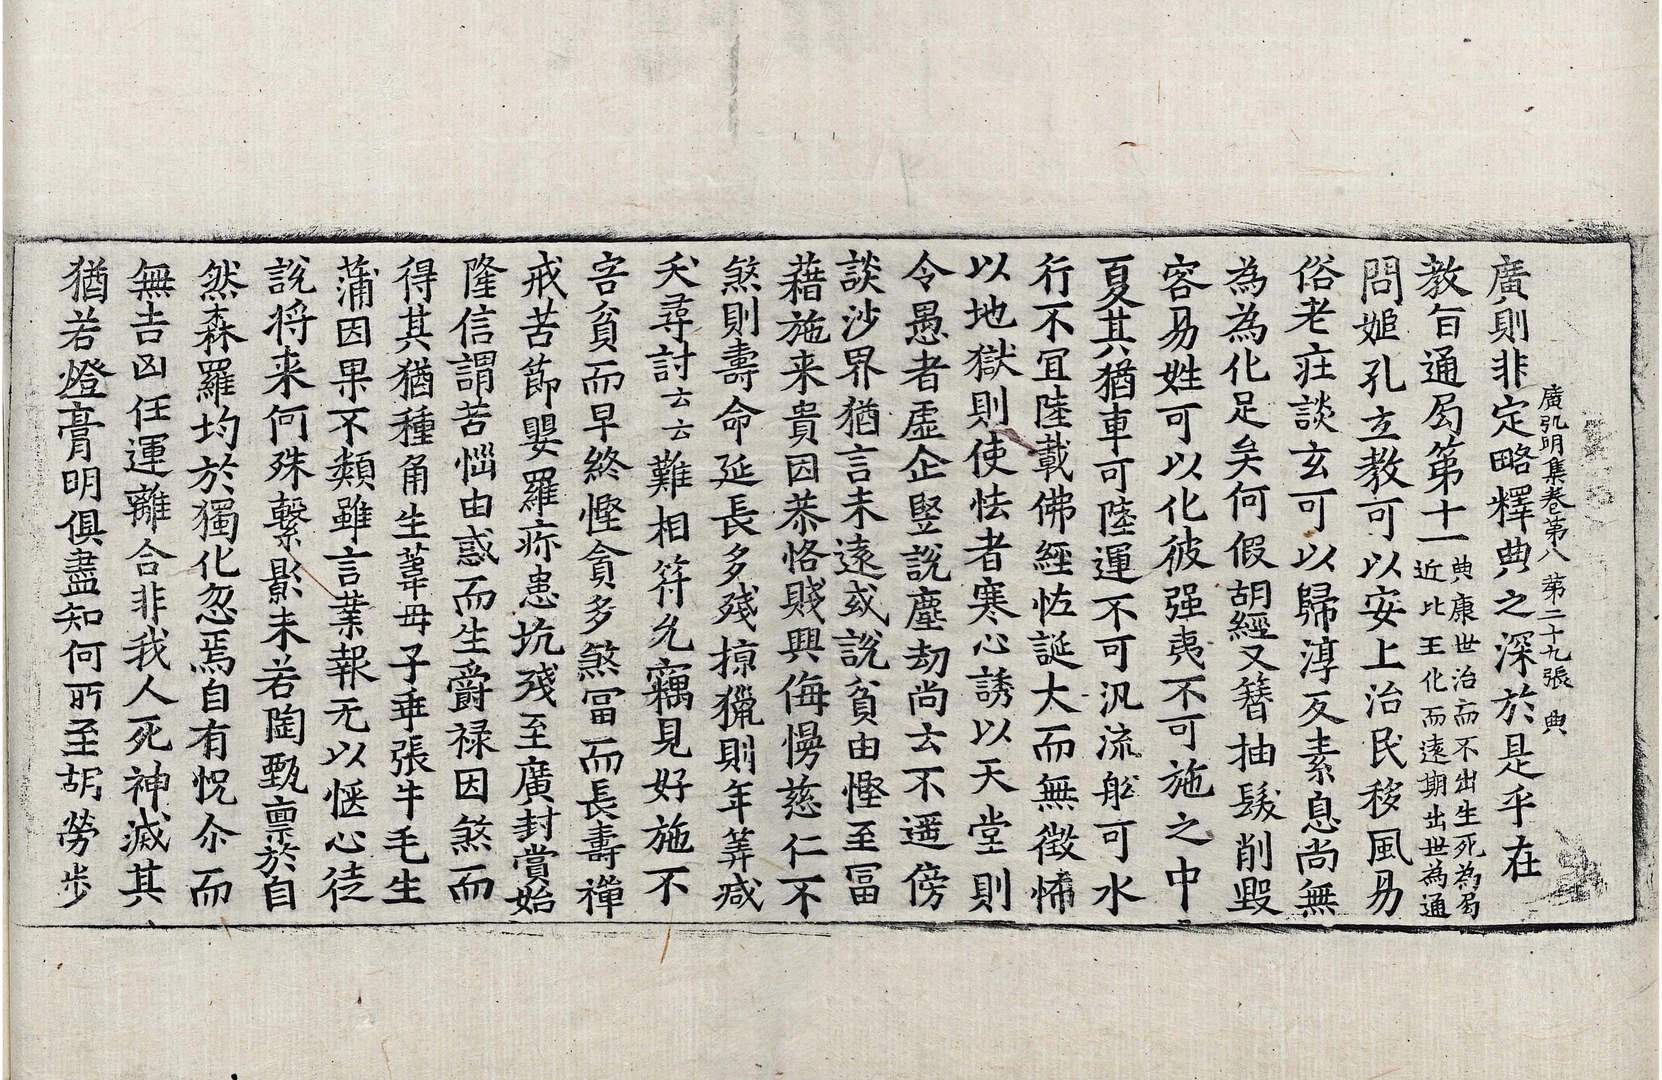 廣弘明集卷第八 第二十九張 典
廣則非定略釋典之深於是乎在
教旨通局第十一 典康世治而不出生死為局
近比王化而遠期出世為通
問姬孔立教可以安上治民移風易
俗老莊談玄可以歸淳反素息尚無
為為化足矣何假胡經又簪抽髮削毀
容易姓可以化彼强夷不可施之中
夏其猶車可陸運不可汎流舩可水
行不宜陸載佛經恠誕大而無徵怖
以地獄則使怯者寒心誘以天堂則
令愚者虛企竪說塵劫尚云不遥傍
談沙界猶言未遠或說貧由慳至冨
藉施来貴因恭恪賤興侮慢慈仁不
煞則壽命延長多殘掠獵則年筭減
夭尋討云云難相符允竊見好施不
恡貧而早終慳貪多煞冨而長壽禪
戒苦節嬰羅疹患坑殘至廣封賞始
隆信謂苦惱由惑而生爵禄因煞而
得其猶種角生葦毋子乖張牛毛生
蒲因果不類雖言業報无以愜心徒
說将来何殊繫影未若陶甄禀於自
然森羅均於獨化忽焉自有怳尒而
無吉凶任運離合非我人死神滅其
猶若燈膏明俱盡知何所至胡勞步